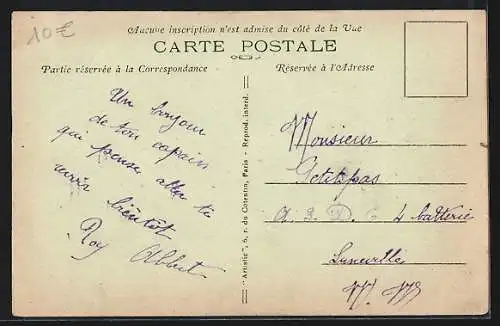 10€
Aucune inscription n'est admise du côté de la Vue
CARTE POSTALE
Partie réservée à la Correspondance
Réservée à l'Adresse
Un bonjour
de ton copain
qui pense aller te
voir bientôt
Roy Albert
"Artistic", 5, r. du Cotentin, Paris - Reprod. interd.
Monsieur
Petitpas
4 batterie
Luneville
M. M